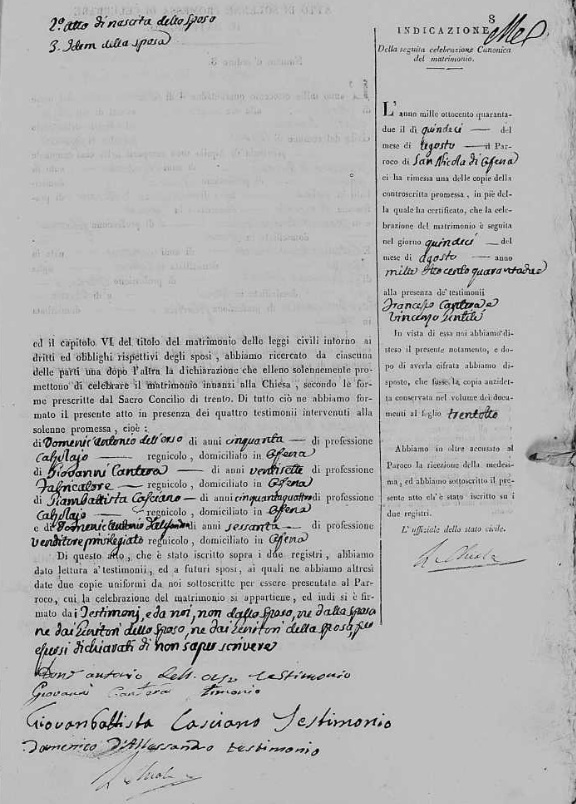 2.º Atto di nascita dello Sposo
3. Idem della sposa
ed il capitolo VI del titolo del matrimonio delle leggi civili intorno ai
dritti ed obblighi rispettivi degli sposi, abbiamo ricercato da ciascuna
delle parti una dopo l'altra la dichiarazione che elleno solennemente pro-
mettono di celebrare il matrimonio innanti alla Chiesa, secondo le for-
me prescritte dal Sacro Concilio di trento. Di tutto ciò ne abbiamo
formato il presente atto in presenza dei quattro testimonii intervenuti alla
solenne promessa, cioè:
di Domenic'Antonio dell'orso di anni cinquanta — di professione
Calzolajo — regnicolo, domiciliato in Ofena
di Giovanni Cantera — di anni ventisette
regnicolo, domiciliato in Ofena
di Giambattista Casciano — di anni cinquantaquattro di professione
Calzolajo — regnicolo, domiciliato in Ofena
e di Domenic'Antonio di anni sessanta — di professione
venditore privilegiato regnicolo, domiciliato in Ofena
Di questo atto, che è stato iscritto sopra i due registri, abbiamo
dato lettura a' testimonii, ed a futuri sposi, ai quali ne abbiamo altresì
date due copie uniformi da noi sottoscritte per essere presentate al Par-
roco, cui la celebrazione del matrimonio si appartiene, ed indi si è fir-
mato dai Testimonj, e da noi, non dallo Sposo, ne dalla sposa
ne dai Genitori dello sposo, ne dai Genitori della sposa per
essersi dichiarati di non saper scrivere
Dom. antonio dell. orso testimonio
Giovanni Cantera timonio
Giovanbattista Casciano Testimonio
Domenico D'Alessandro testimonio
8
INDICAZIONE
Della seguita celebrazione Canonica
del matrimonio.
L'anno mille ottocento quaranta-
due il dì quindeci — del
mese di Agosto — il Par-
roco di San Nicola di Ofena
ci ha rimessa una delle copie della
controscritta promessa, in piè del-
la quale ha certificato, che la cele-
brazione del matrimonio è seguita
nel giorno quindeci — del
mese di Agosto — anno
mille Ottocento quarantadue
alla presenza de' testimonii
Francesco Cantera e
Vincenzo Gentile
In vista di essa noi abbiamo di-
steso il presente notamento, e do-
po di averla cifrata abbiamo di-
sposto, che fusse la copia anzidet-
ta conservata nel volume dei docu-
menti al foglio trentotto
Abbiamo in oltre accusato al
Paroco la ricezione della medesi-
ma, ed abbiamo sottoscritto il pre-
sente atto ch'è stato iscritto su i
due registri.
L'uffiziale dello stato civile.